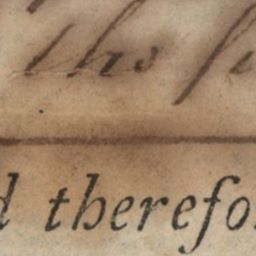 this
d therefo